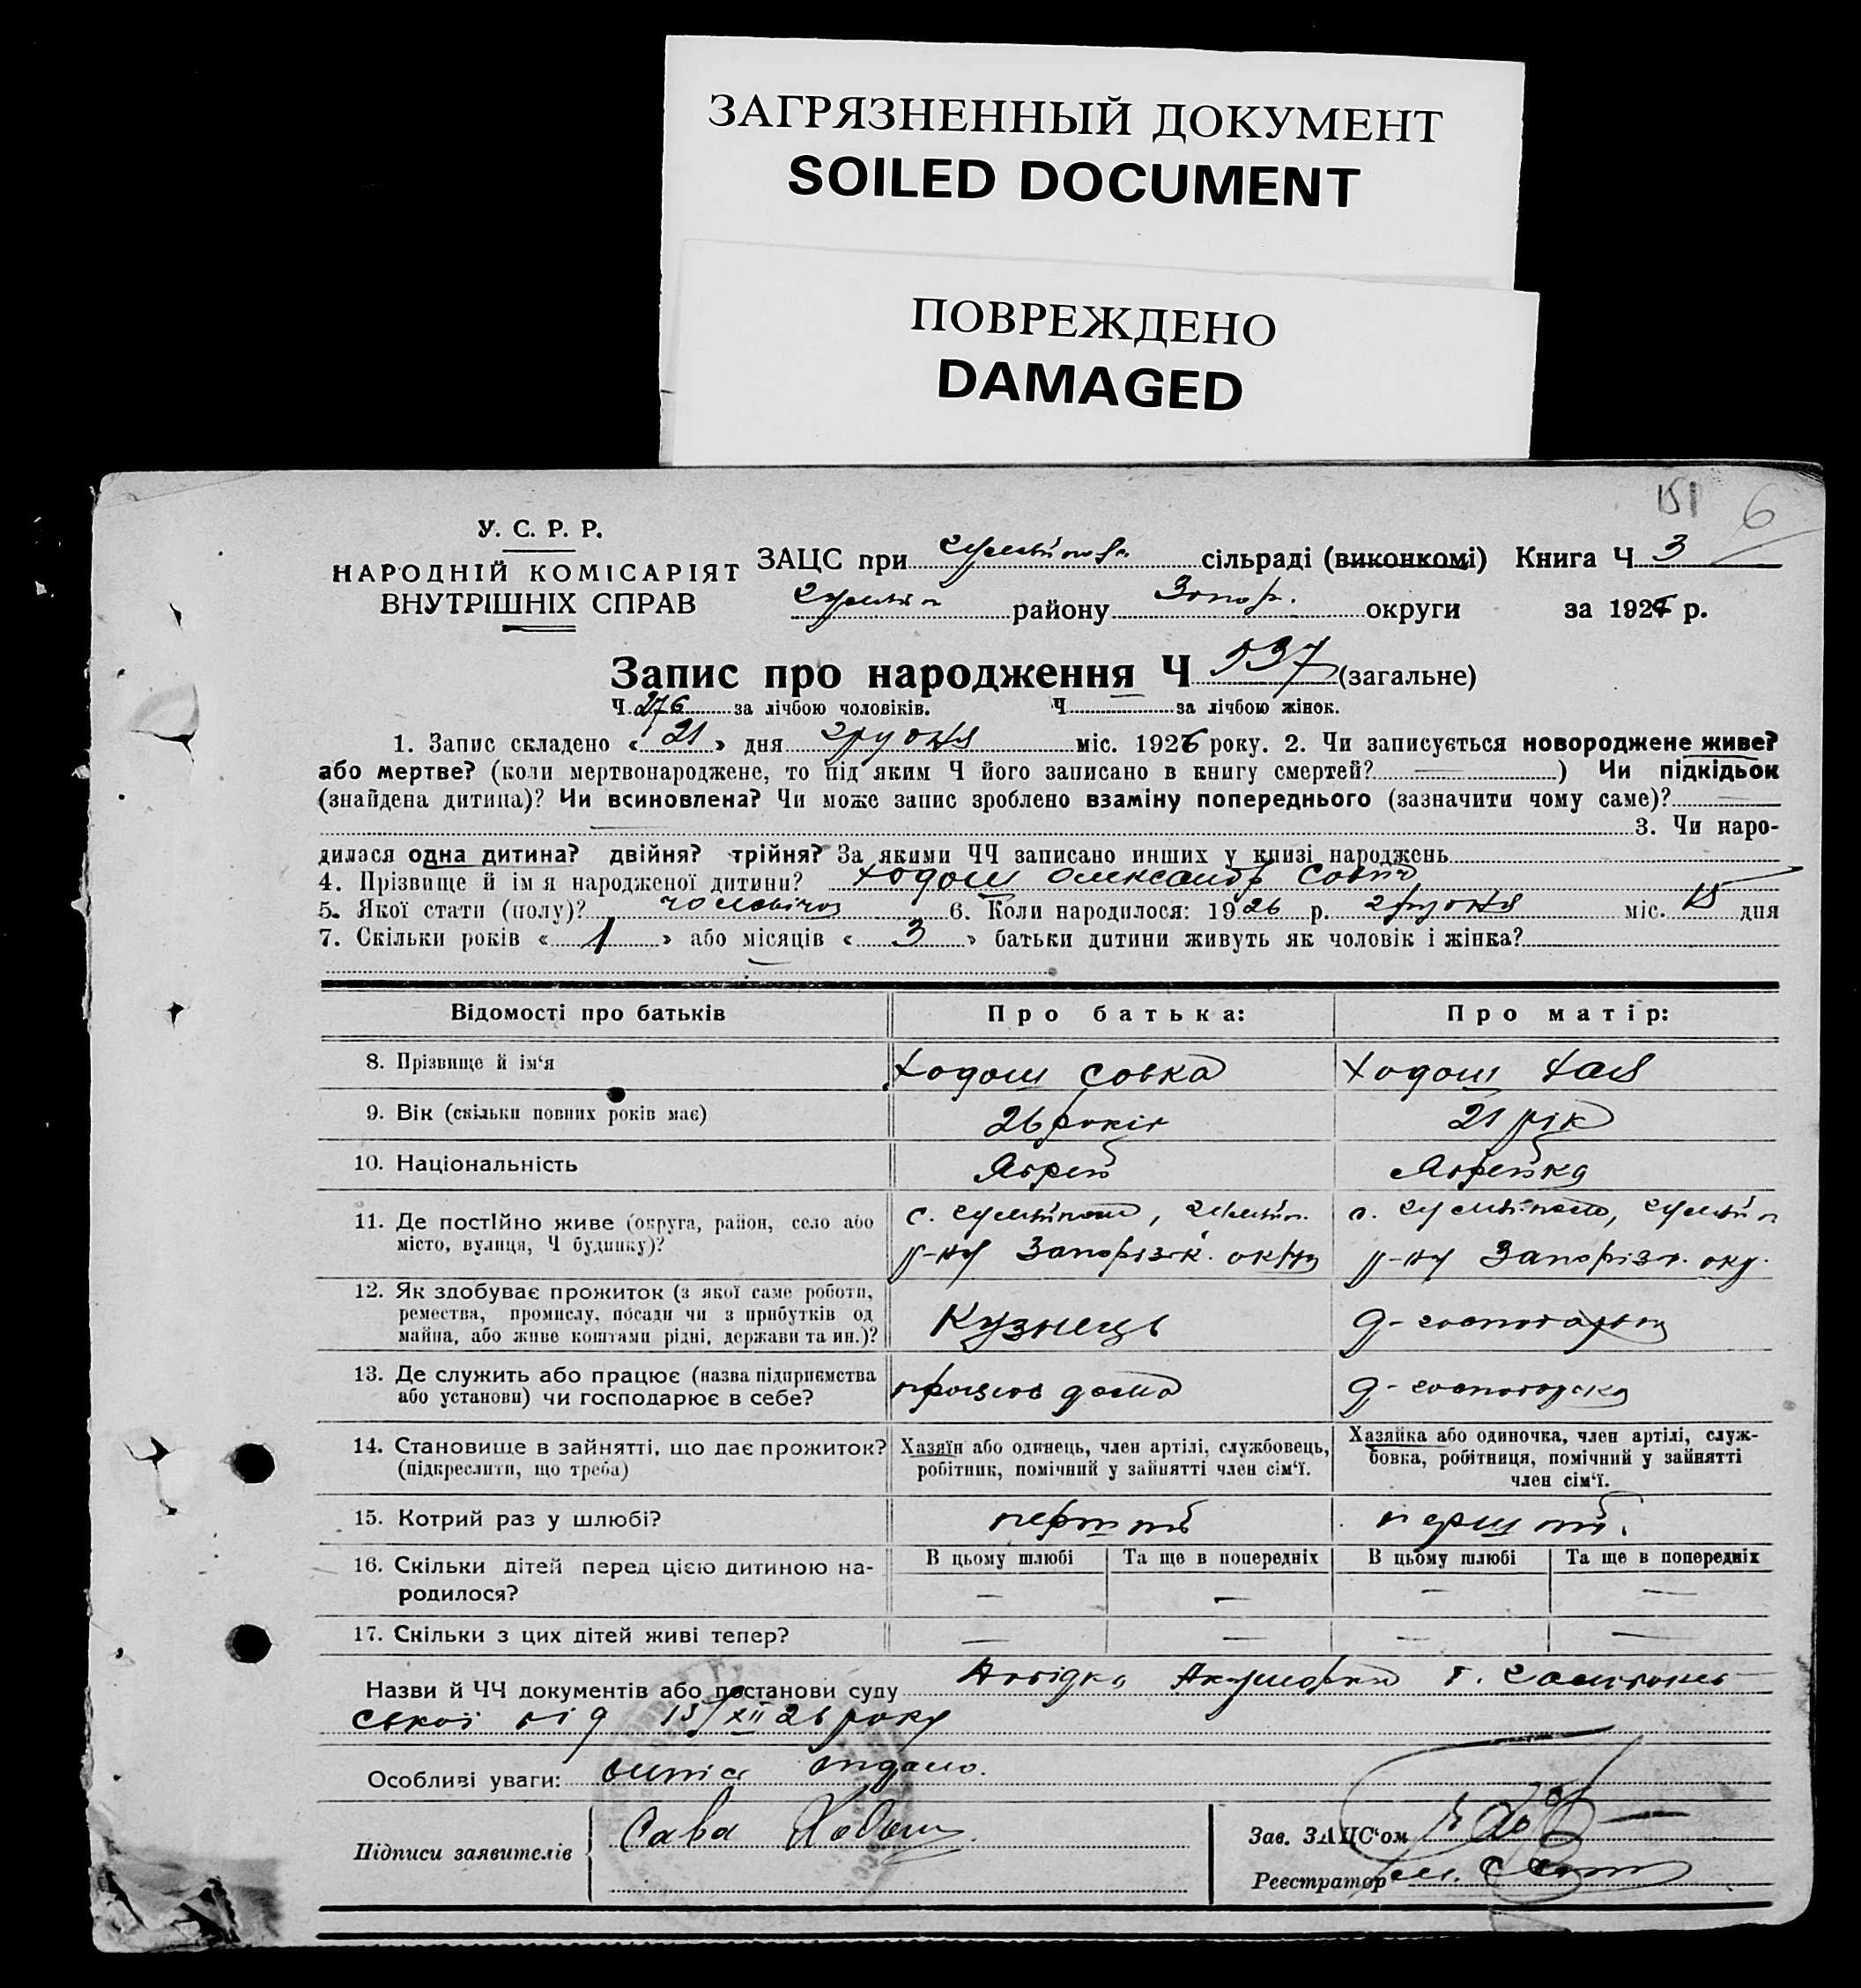 ЗАГРЯЗНЕННЫЙ ДОКУМЕНТ
SOILED DOCUMENT
ПОВРЕЖДЕНО
DAMAGED
151 6
У. С. Р. Р.
НАРОДНІЙ КОМІСАРІЯТ
ВНУТРІШНІХ СПРАВ
ЗАЦС при сільраді (виконкомі) Книга Ч 3
району Запор. округи за 1926 р.
Запис про народження Ч 537 (загальне)
Ч 276 за лічбою чоловіків. Ч за лічбою жінок.
1. Запис складено « 21 » дня грудня міс. 1926 року. 2. Чи записується новороджене живе?
або мертве? (коли мертвонароджене, то під яким Ч його записано в книгу смертей? — ) Чи підкідьок
(знайдена дитина)? Чи всиновлена? Чи може запис зроблено взаміну попереднього (зазначити чому саме)? —
— 3. Чи наро-
дилася одна дитина? двійня? трійня? За якими ЧЧ записано инших у книзі народжень
4. Прізвище й імя народженої дитини? Ходош Олександр Сович
5. Якої стати (полу)? чоловічої 6. Коли народилося: 1926 р. грудня міс. 15 дня
7. Скільки років « 1 » або місяців « 3 » батьки дитини живуть як чоловік і жінка?
Відомості про батьків Про батька: Про матір:
8. Прізвище й ім‘я Ходош Совка Ходош Хая
9. Вік (скільки повних років має) 26 років 21 рік
10. Національність Яврей Яврейка
11. Де постійно живе (округа, район, село або
місто, вулиця, Ч будинку)?
р-ну Запорізьк. окру р-ну Запорізь. окр.
12. Як здобуває прожиток (з якої саме роботи,
ремества, промислу, посади чи з прибутків од
майна, або живе коштами рідні, держави та ин.)?
Кузнець д-господарка
13. Де служить або працює (назва підприємства
або установи) чи господарює в себе?
працює дома д-господарка
14. Становище в зайнятті, що дає прожиток?
(підкреслити, що треба)
Хазяїн або одинець, член артілі, службовець,
робітник, помічний у зайнятті член сім‘ї.
Хазяйка або одиночка, член артілі, служ-
бовка, робітниця, помічний у зайнятті
член сім‘ї.
15. Котрий раз у шлюбі? перший перший.
16. Скільки дітей перед цією дитиною на-
родилося?
В цьому шлюбі Та ще в попередніх В цьому шлюбі Та ще в попередніх
— — — —
17. Скільки з цих дітей живі тепер? — — — —
Назви й ЧЧ документів або постанови суду Довідка Акушорки
ської від 15/XII 26 року
Особливі уваги: випис видано.
Підписи заявителів Сава Ходош
Зав. ЗАЦС‘ом
Реєстратор